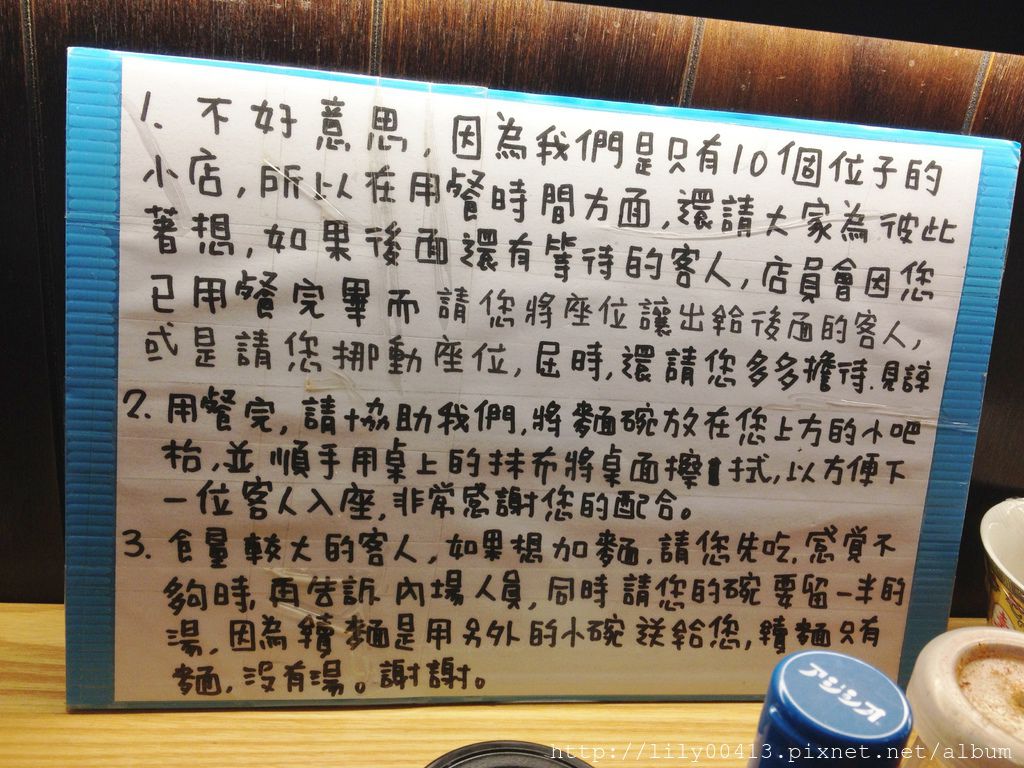 1. 不好意思,因為我們是只有10個位子的
小店,所以在用餐時間方面,還請大家為彼此
著想,如果後面還有等待的客人,店員會因您
已用餐完畢而請您將座位讓出給後面的客人,
或是請您挪動座位,屆時,還請您多多擔待.見諒
2. 用餐完,請協助我們,將麵碗放在您上方的小吧
枱,並順手用桌上的抹布將桌面擦拭,以方便下
一位客人入座,非常感謝您的配合。
3. 食量較大的客人,如果想加麵.請您先吃.感覺不
夠時,再告訴內場人員,同時請您的碗要留一半的
湯,因為續麵是用另外的小碗送給您,續麵只有
麵,沒有湯。謝謝。
アジシオ
http://lily00413.pixnet.net/album